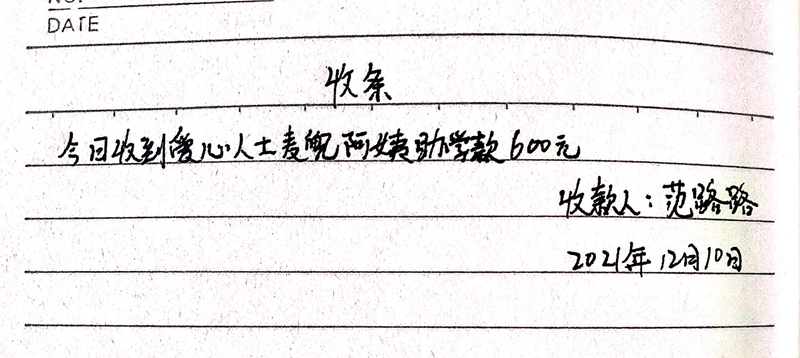 NO.
DATE
收条
今日收到爱心人士麦倪阿姨助学款600元
收款人：范路路
2021年12月10日